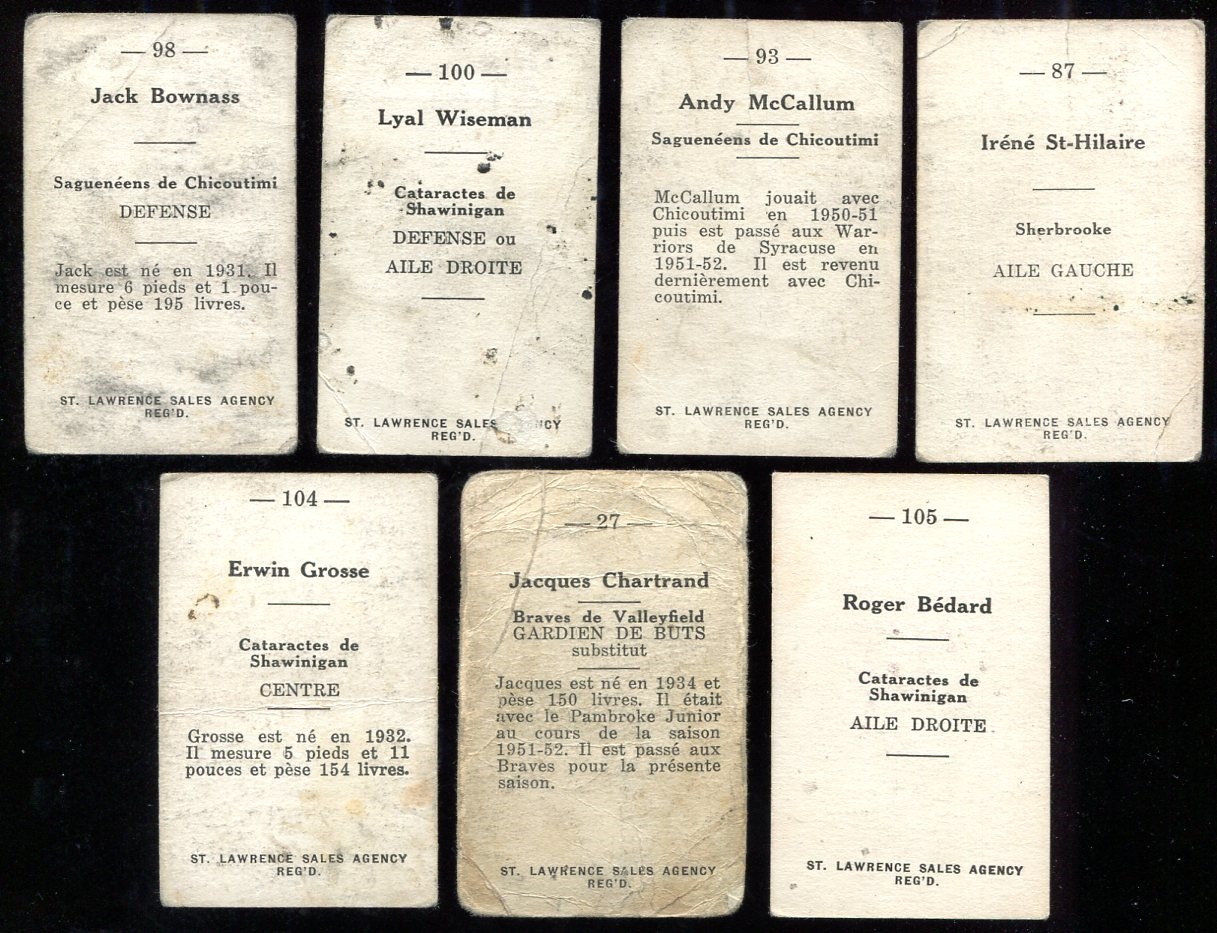 — 98 —
Jack Bownass
Saguenéens de Chicoutimi
DEFENSE
Jack est né en 1931. Il
mesure 6 pieds et 1 pou-
ce et pèse 195 livres.
ST. LAWRENCE SALES AGENCY
REG'D.
— 100 —
Lyal Wiseman
Cataractes de
Shawinigan
DEFENSE ou
AILE DROITE
ST. LAWRENCE SALES
REG'D.
— 93 —
Andy McCallum
Saguenéens de Chicoutimi
McCallum jouait avec
Chicoutimi en 1950-51
puis est passé aux War-
riors de Syracuse en
1951-52. Il est revenu
dernièrement avec Chi-
coutimi.
ST. LAWRENCE SALES AGENCY
REG'D.
— 87 —
Iréné St-Hilaire
Sherbrooke
AILE GAUCHE
ST. LAWRENCE SALES AGENCY
REG'D.
— 104 —
Erwin Grosse
Cataractes de
Shawinigan
CENTRE
Grosse est né en 1932.
Il mesure 5 pieds et 11
pouces et pèse 154 livres.
ST. LAWRENCE SALES AGENCY
REG'D.
— 27 —
Jacques Chartrand
Braves de Valleyfield
GARDIEN DE BUTS
substitut
Jacques est né en 1934 et
pèse 150 livres. Il était
avec le Pambroke Junior
au cours de la saison
1951-52. Il est passé aux
Braves pour la présente
saison.
ST. LAWRENCE SALES AGENCY
REG'D.
— 105 —
Roger Bédard
Cataractes de
Shawinigan
AILE DROITE
ST. LAWRENCE SALES AGENCY
REG'D.